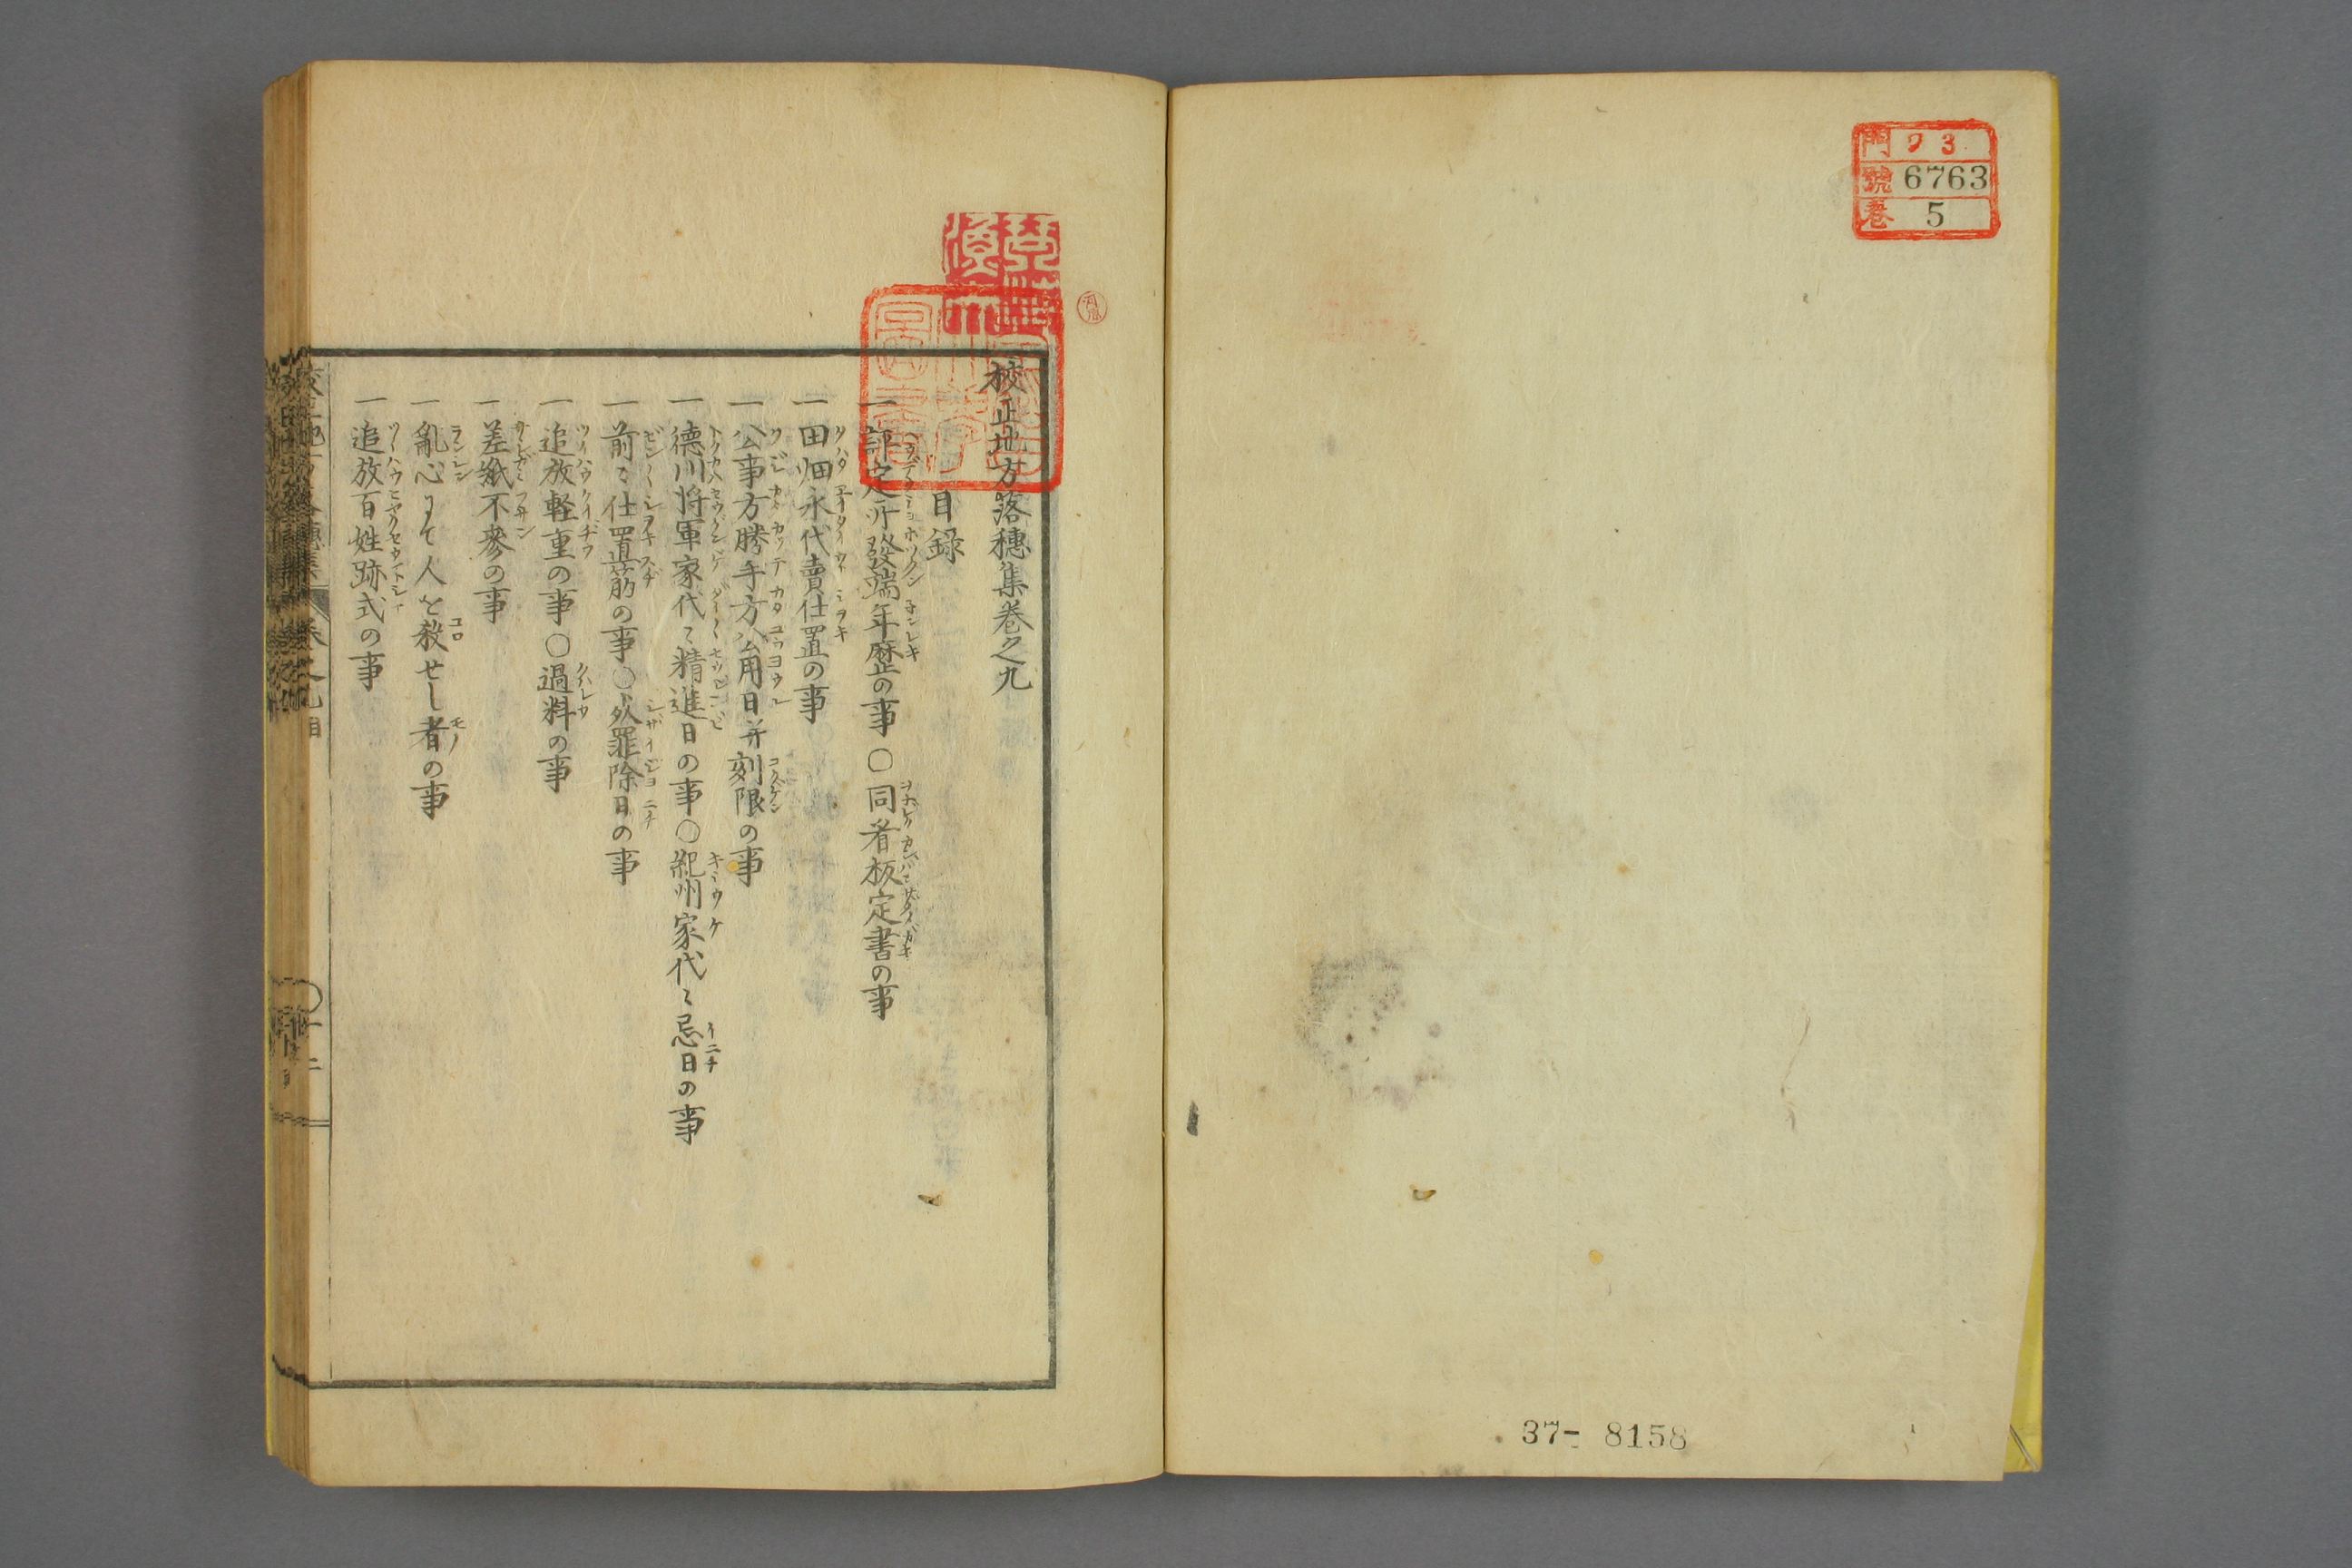 門 ヲ 3
號 6763
巻 5
37- 8158
校正地方落穗集巻之九
目録
一 評定所發端年歴の事 〇同看板定書の事
一 田畑永代賣仕置の事
一 公事方勝手方公用日并刻限の事
一 德川将軍家代〻精進日の事〇紀州家代〻忌日の事
一 前〻仕置筋の事〇死罪除日の事
一 追放軽重の事 〇過料の事
一 差紙不參の事
一 亂心にて人を殺せし者の事
一 追放百姓跡式の事